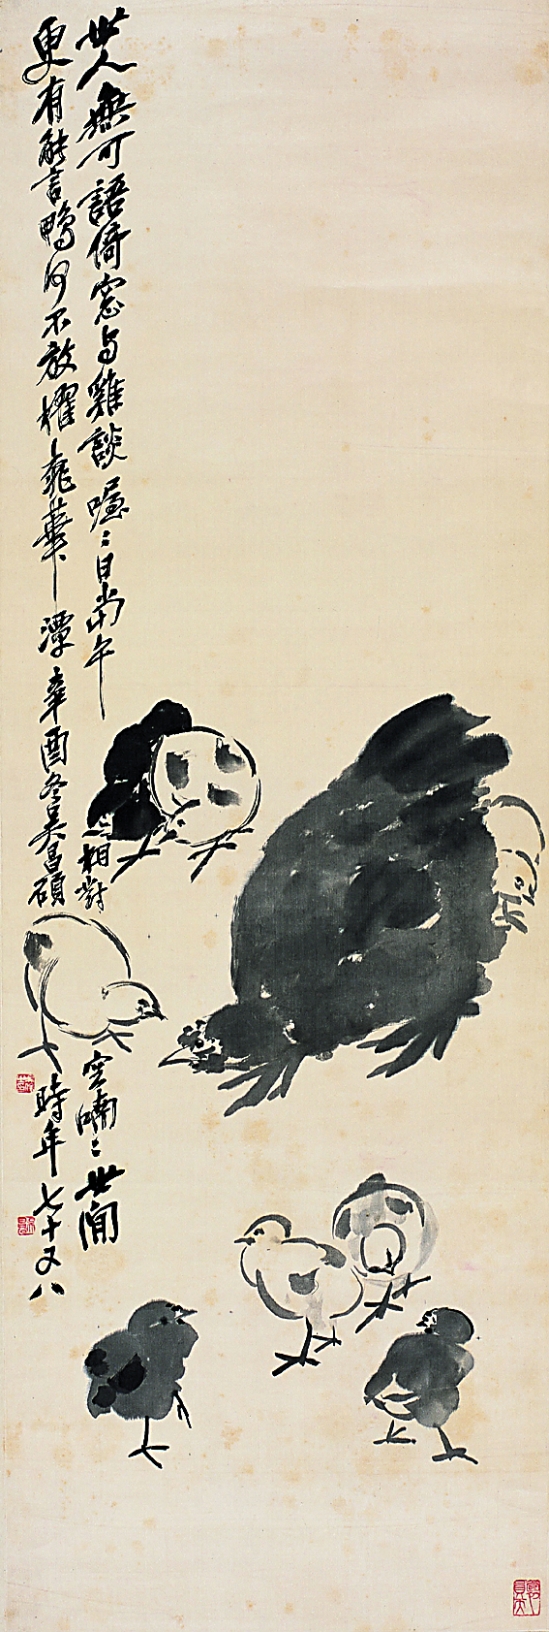 世人無可語倚窗与雞談喔〻日當午
三相對
空喃〻世間
更有能言鴨何不放櫂龍華潭辛酉冬吳昌碩
時年七十又八